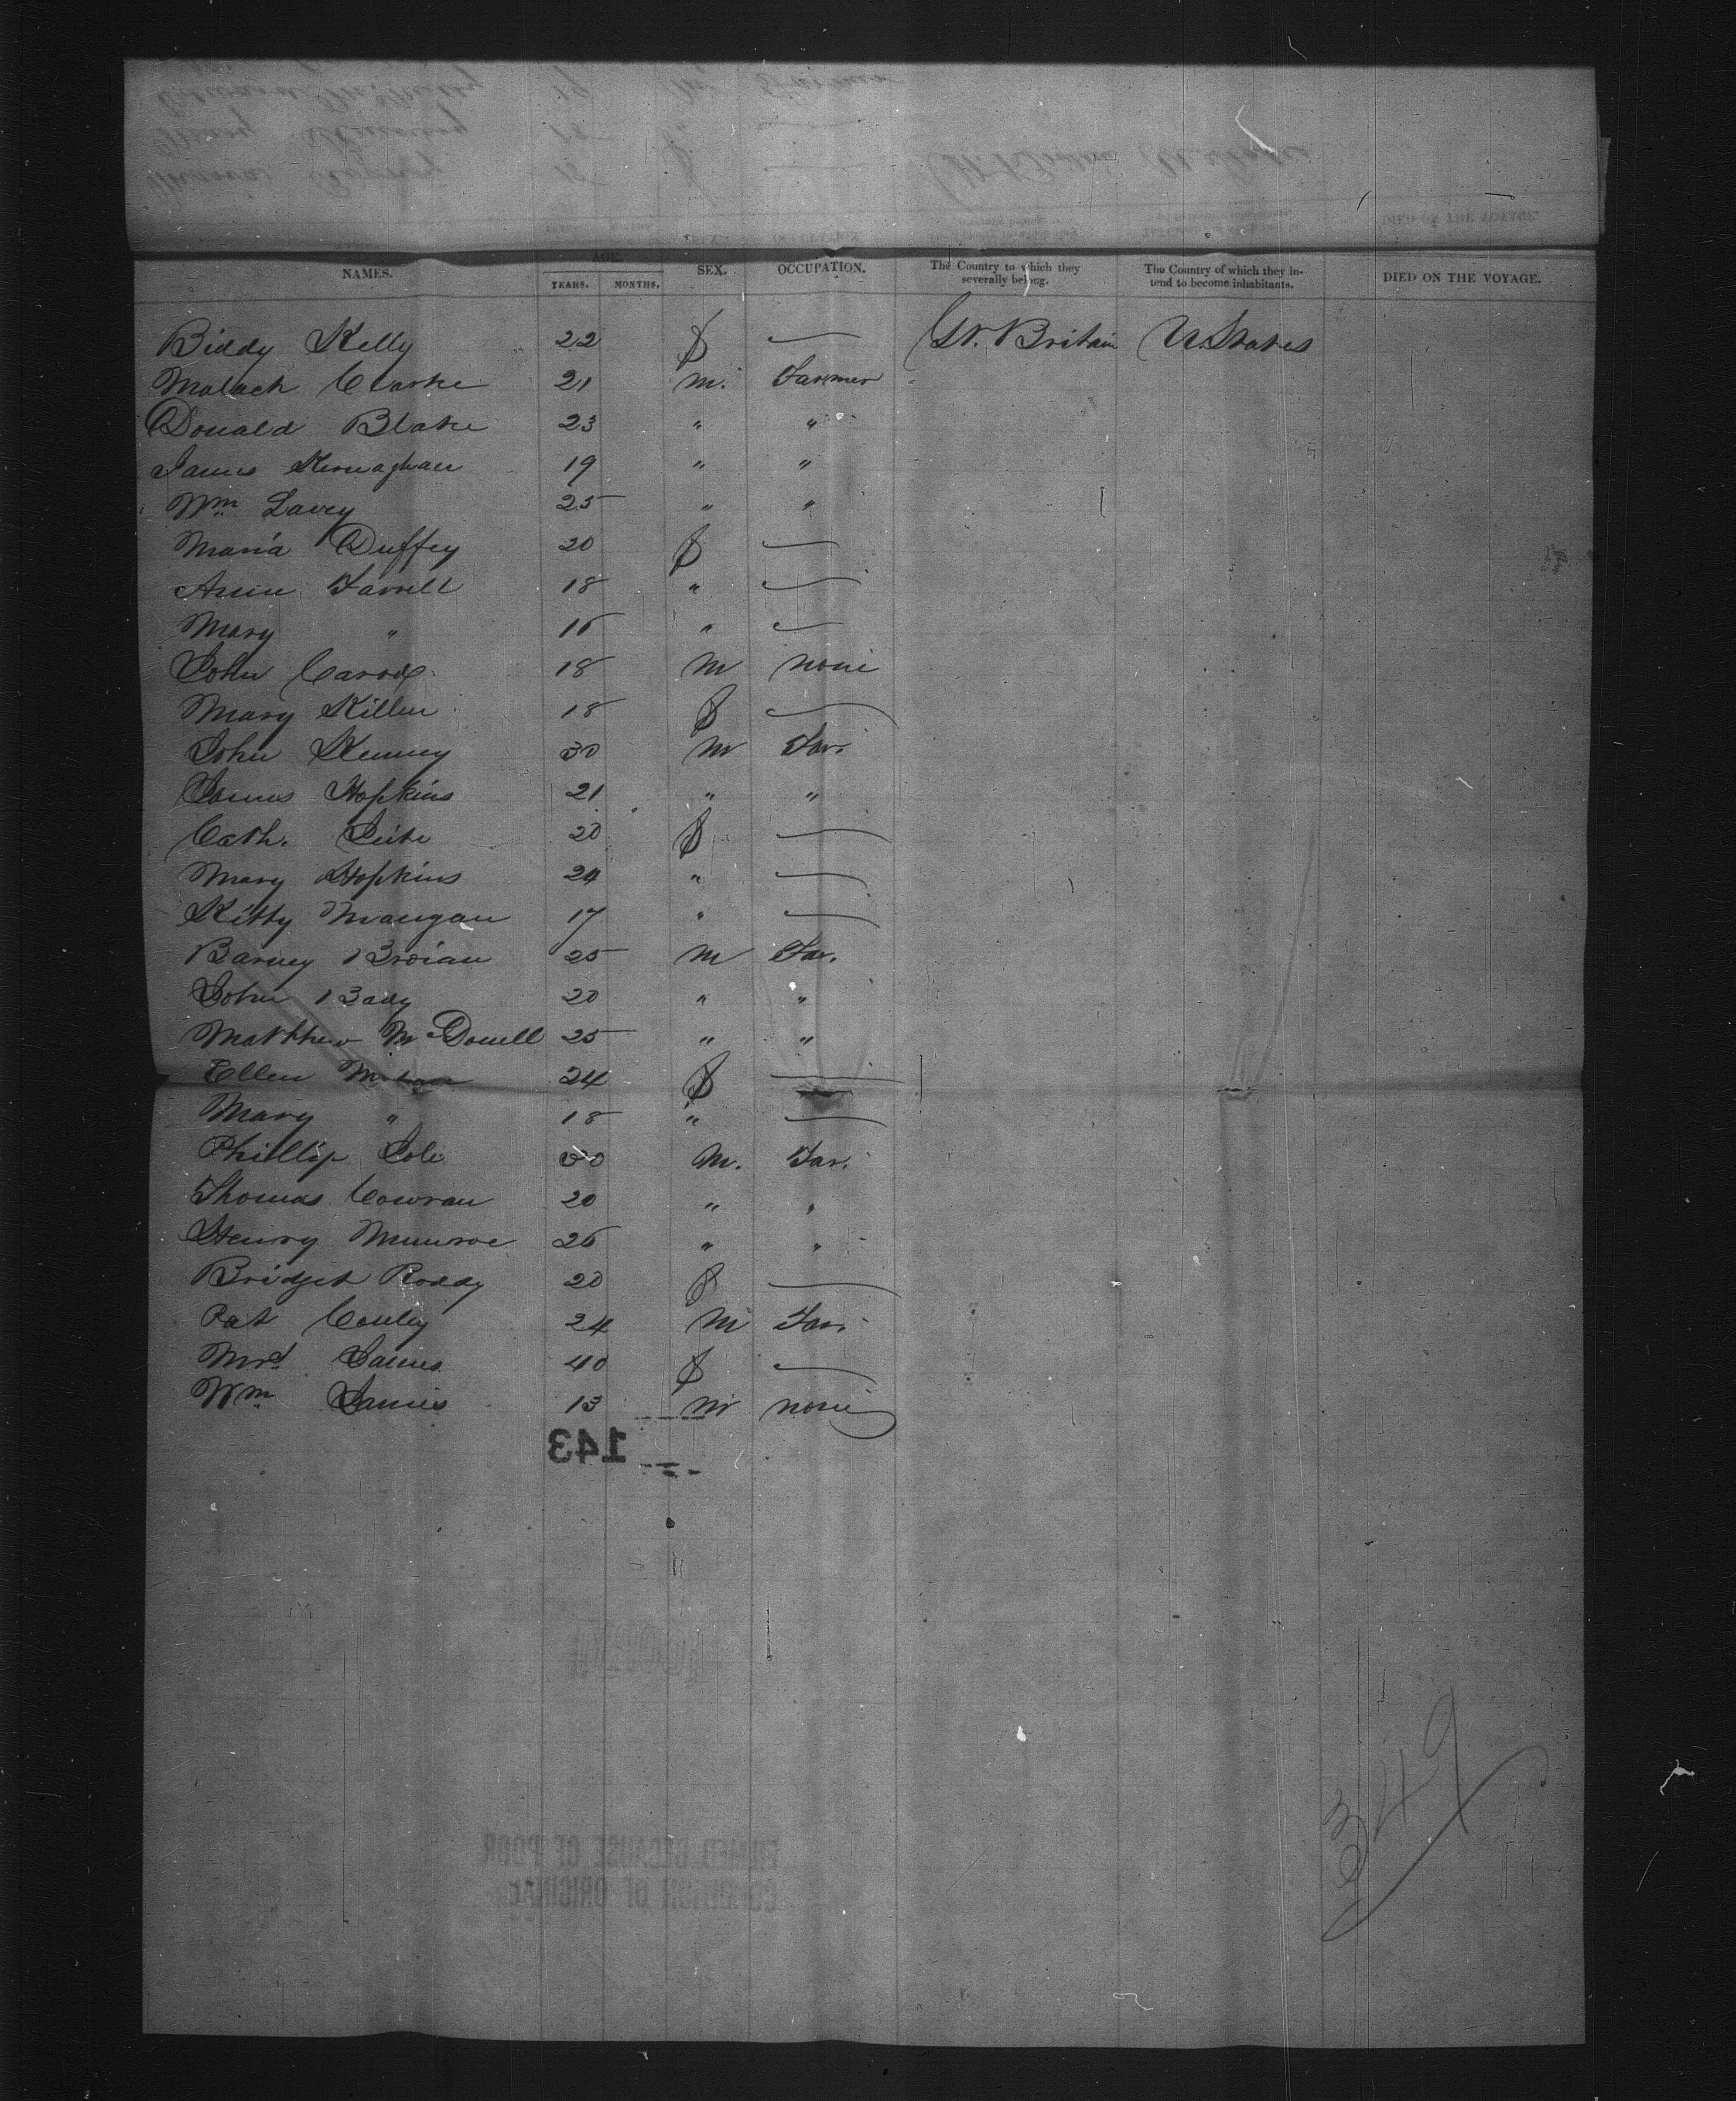 NAMES. AGE. YEARS. MONTHS. SEX. OCCUPATION. The Country to which they severally belong. The Country of which they intend to become inhabitants. DIED ON THE VOYAGE.
Biddy Kelly 22 f — Gr. Britain U. States
Malach Clarke 21 m. Farmer
Donald Blake 23 " "
James Kernaghan 19 " "
Wm Lavey 25 " "
Maria Duffey 20 f —
Ann Farrell 18 " —
Mary " 16 " —
John 18 m none
Mary Killen 18 f —
John Kenney 30 m Far.
James Hopkins 21 " "
Cath. 20 f —
Mary Hopkins 24 " —
Kitty Mangan 17 " —
Barney 25 m Far.
John 20 " "
Matthew McDonell 25 " "
Ellen 24 f —
Mary " 18 " —
Phillip M. Far.
Thomas Cowran 20 " "
Henry Munroe 26 " "
Bridget Roddy 20 f —
Pat Conley 24 m Far.
Mrs. James 40 f —
Wm James 13 m none
143
FILMED BECAUSE OF POOR
CONDITION OF ORIGINAL
349